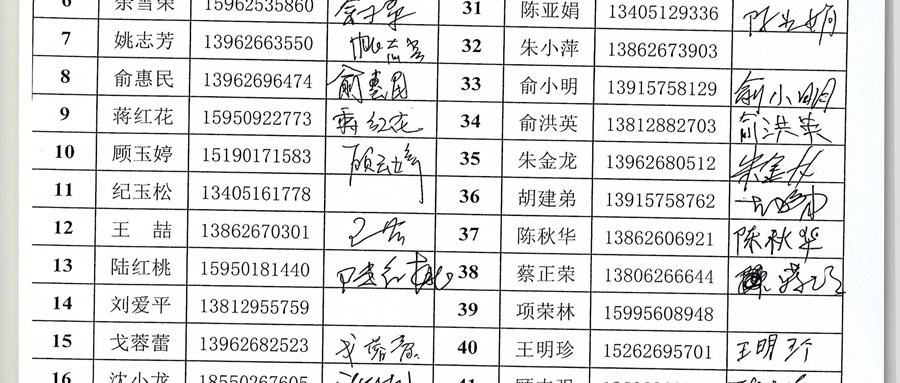 6 余雪荣 15962535860 余雪荣 31 陈亚娟 13405129336 陈亚娟
7 姚志芳 13962663550 姚志芳 32 朱小萍 13862673903
8 俞惠民 13962696474 俞惠民 33 俞小明 13915758129 俞小明
9 蒋红花 15950922773 蒋红花 34 俞洪英 13812882703 俞洪英
10 顾玉婷 15190171583 顾玉婷 35 朱金龙 13962680512 朱金龙
11 纪玉松 13405161778 36 胡建弟 13915758762
12 王喆 13862670301 王喆 37 陈秋华 13862606921 陈秋华
13 陆红桃 15950181440 陆红桃 38 蔡正荣 13806266644
14 刘爱平 13812955759 39 项荣林 15995608948
15 戈蓉蕾 13962682523 戈蓉蕾 40 王明珍 15262695701 王明珍
16 沈小龙 18550267605 41